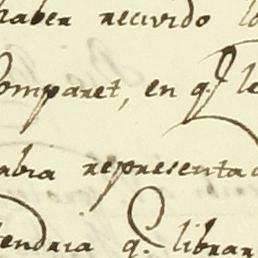 haber recivido lo
Comparet, en q.e le
abia representad
tendria q.e librar